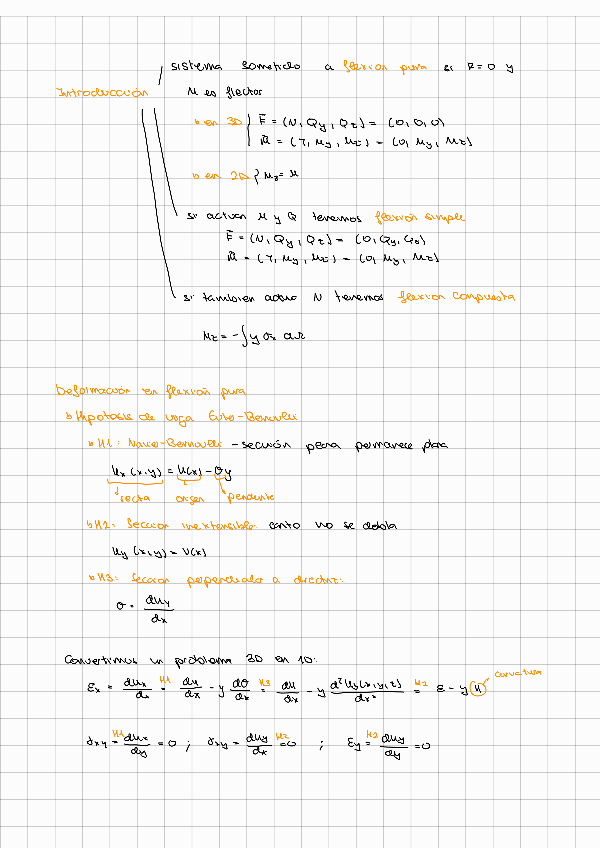 sistema sometido a flexión pura si R=0 y
Introducción M es flector
en 3D { F̄ = (N, Qy, Qz) = (0, 0, 0)
M̄ = (T, My, Mz) = (0, My, Mz)
en 2D { Mz = M
si actuan M y Q tenemos flexión simple
F̄ = (N, Qy, Qz) = (0, Qy, Qz)
M̄ = (T, My, Mz) = (0, My, Mz)
si tambien actua N tenemos flexión compuesta
Mz = -∫ y σx dΩ
Deformación en flexión pura
Hipotesis de viga Euler-Bernoulli
H1: Navier-Bernoulli - sección plana permanece plana
ux (x,y) = u(x) - θy
recta origen pendiente
H2: Sección inextensible: canto no se dobla
uy (x,y) = v(x)
H3: Sección perpendicular a directriz:
θ = duy/dx
Convertimos un problema 3D en 1D:
εx = dux/dx =H1 du/dx - y dθ/dx =H3 du/dx - y d²uy(x,y,z)/dx² =H2 ε - y ϰ curvatura
γxy =H1 dux/dy = 0 ; γxy = duy/dx =H2 0 ; εy =H2 duy/dy = 0